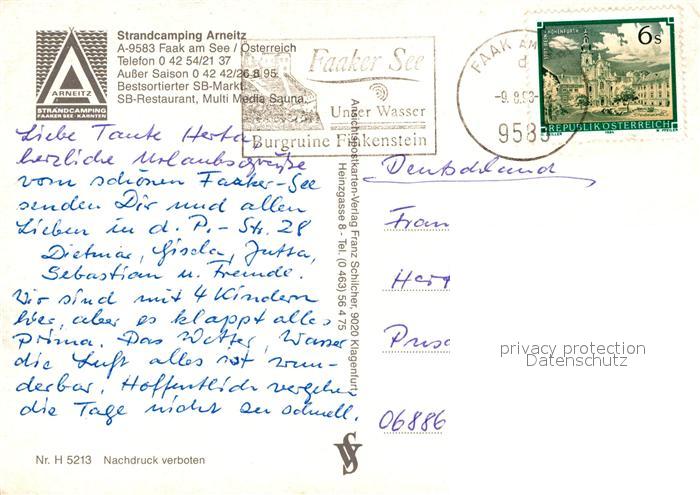 Strandcamping Arneitz
A-9583 Faak am See / Österreich
Telefon 0 42 54/21 37
Außer Saison 0 42 42/26 8 95
Bestsortierter SB-Markt
SB-Restaurant, Multi Media Sauna
ARNEITZ
STRANDCAMPING
FAAKER SEE - KÄRNTEN
Faaker See
Unser Wasser
Burgruine Finkenstein
FAAK AM
9583
6s
REPUBLIK ÖSTERREICH
Liebe Tante Herta
herzliche Urlaubsgrüße
vom schönen Faaker-See
senden Dir und allen
Lieben in d. P.-Str. 28
Dietmar, Gisela, Jutta,
Sebastian u. Freunde.
Wir sind mit 4 Kindern
hier, aber es klappt alles
prima. Das Wetter, Wasser
die Luft alles ist wun-
derbar. Hoffentlich vergehen
die Tage nicht zu schnell.
Ansichtspostkarten-Verlag Franz Schilcher, 9020 Klagenfurt
Heinzgasse 8 - Tel. (0 463) 56 4 75
Deutschland
Frau
Hert
06886
privacy protection
Datenschutz
Nr. H 5213 Nachdruck verboten